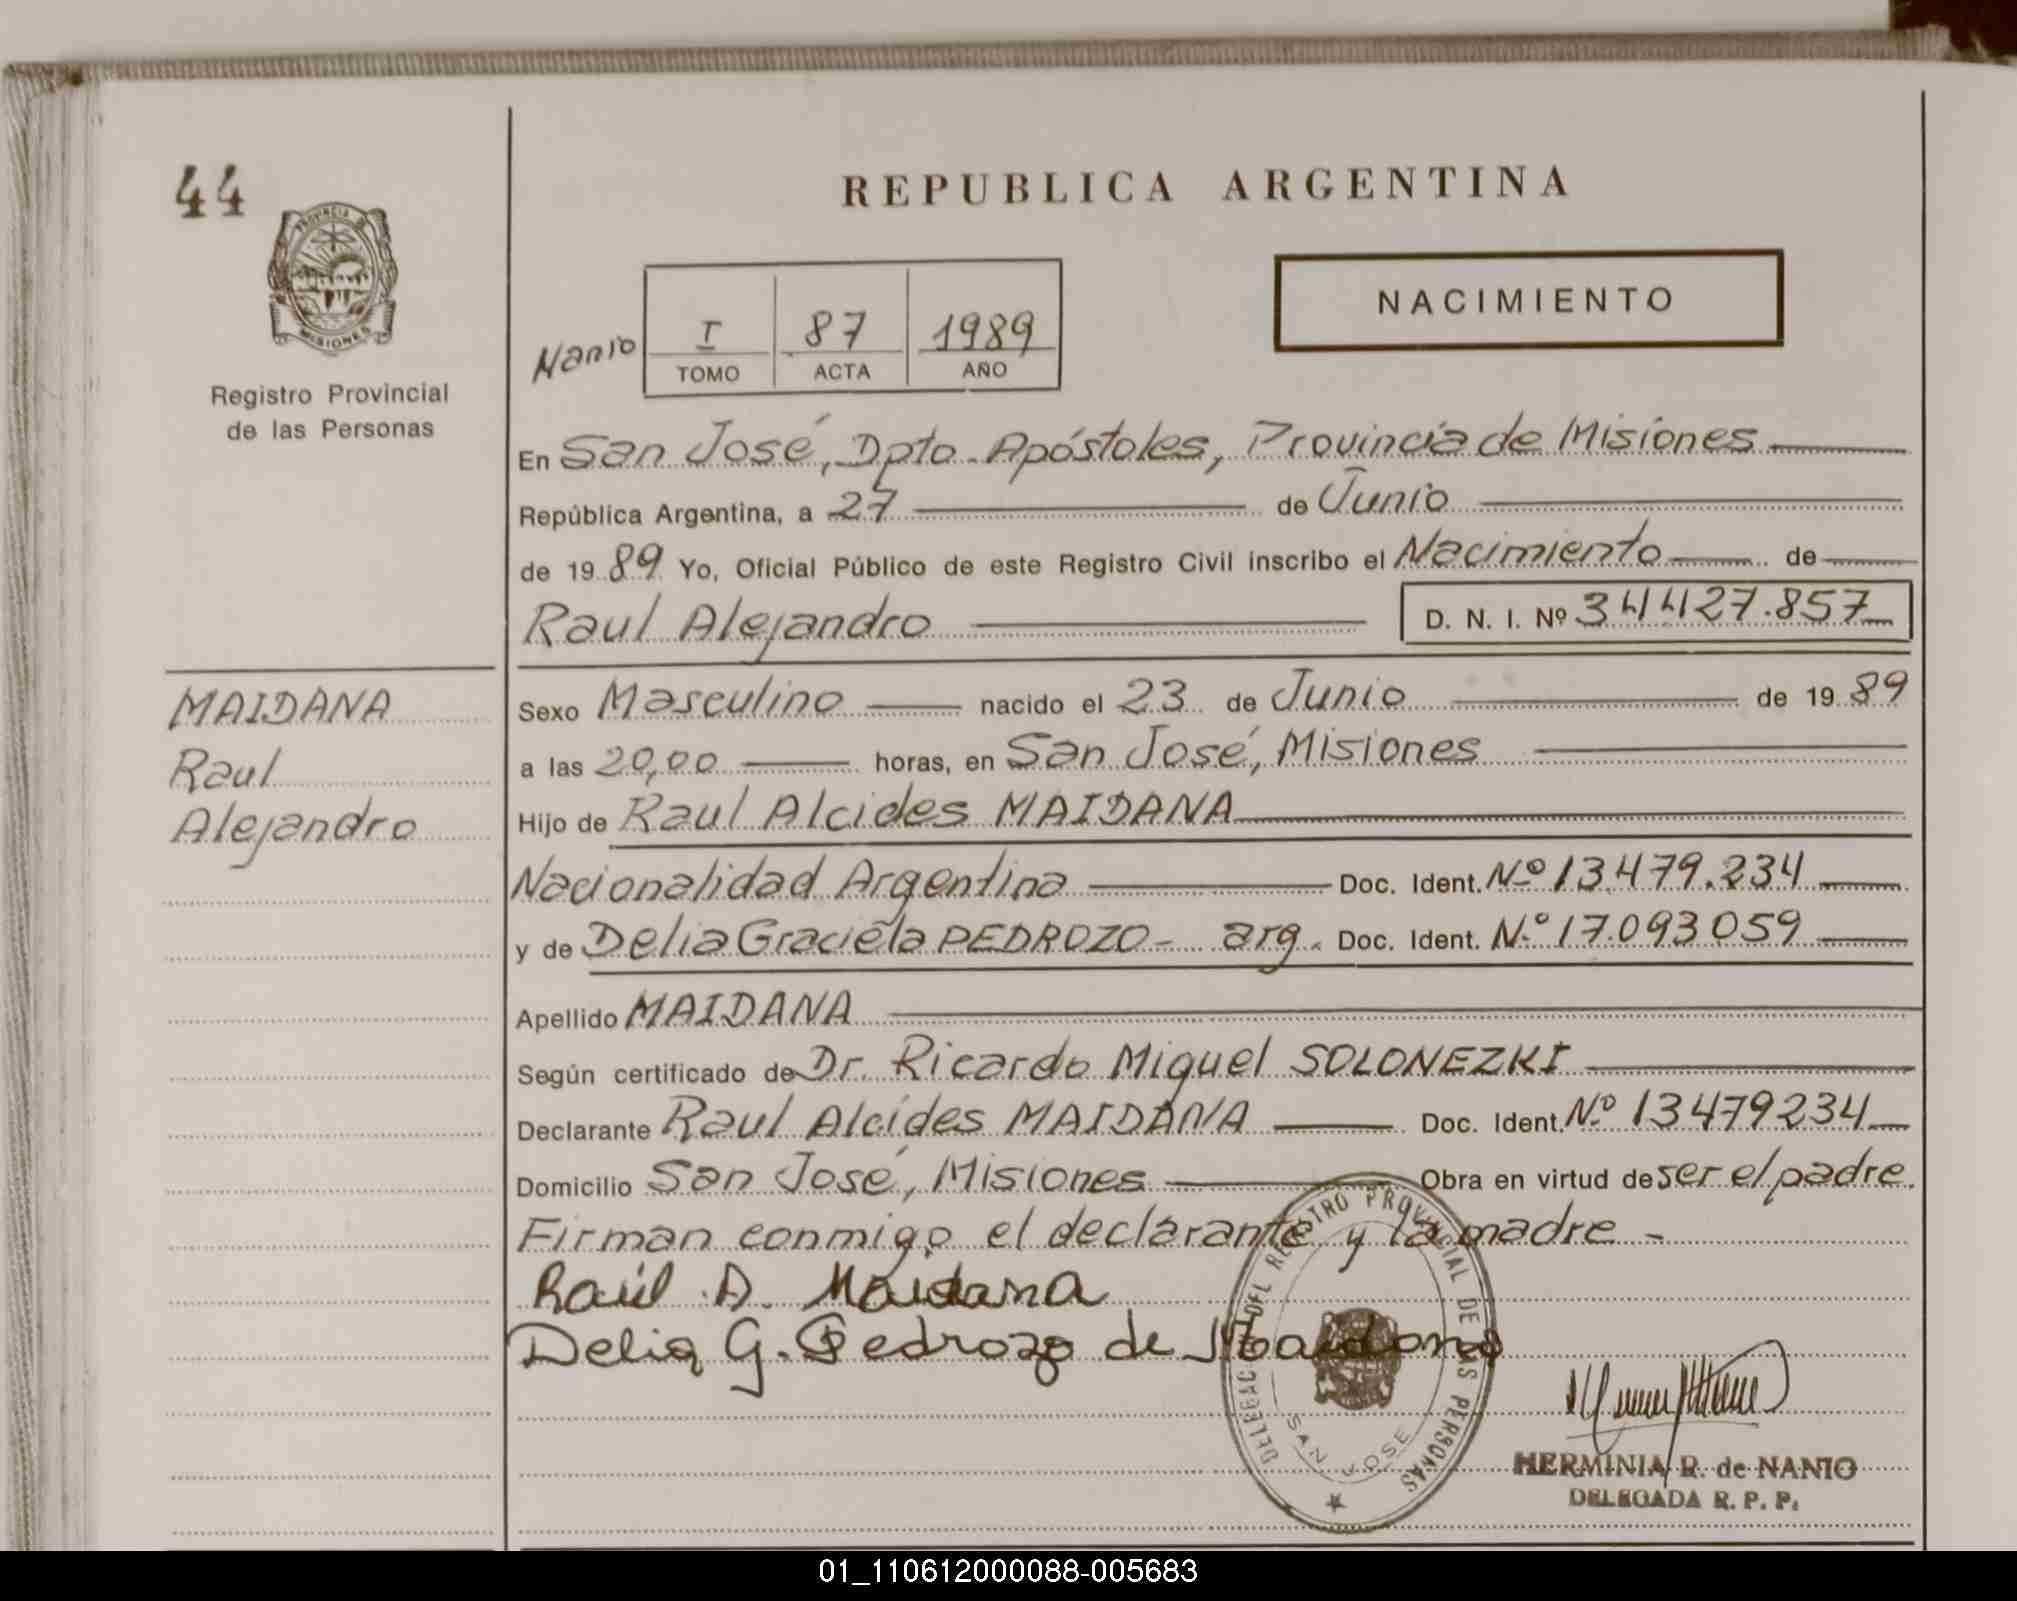 44
PROVINCIA DE
MISIONES
Registro Provincial
de las Personas
REPUBLICA ARGENTINA
NACIMIENTO
Nanio
I 87 1989
TOMO ACTA AÑO
En San José, Dpto. Apóstoles, Provincia de Misiones
República Argentina, a 27 de Junio
de 1989 Yo, Oficial Público de este Registro Civil inscribo el Nacimiento de
Raul Alejandro D. N. I. Nº 34427.857
MAIDANA
Raul
Alejandro
Sexo Masculino nacido el 23 de Junio de 1989
a las 20,00 horas, en San José, Misiones
Hijo de Raul Alcides MAIDANA
Nacionalidad Argentina Doc. Ident. Nº 13.479.234
y de Delia Graciela PEDROZO - arg. Doc. Ident. Nº 17.093059
Apellido MAIDANA
Según certificado de Dr. Ricardo Miguel SOLONEZKI
Declarante Raul Alcides MAIDANA Doc. Ident. Nº 13479234
Domicilio San José, Misiones Obra en virtud de ser el padre.
Firman conmigo el declarante y la madre -
Raúl A. Maidana
Delia G. Pedrozo de Maidana
DEL REGISTRO PROVINCIAL DE LAS PERSONAS
SAN JOSE
HERMINIA R. de NANIO
DELEGADA R. P. P.
01_110612000088-005683